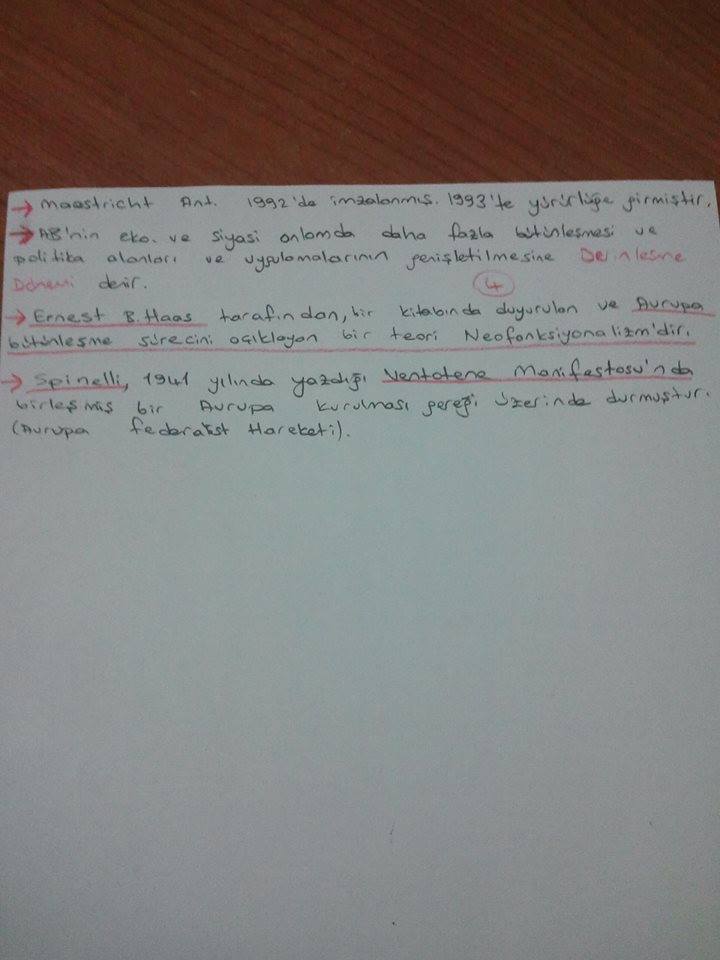 → Maastricht Ant. 1992'de imzalanmış. 1993'te yürürlüğe girmiştir.
→ AB'nin eko. ve siyasi anlamda daha fazla bütünleşmesi ve
politika alanları ve uygulamalarının genişletilmesine Derinleşme
Dönemi denir. 4
→ Ernest B. Haas tarafından, bir kitabında duyurulan ve Avrupa
bütünleşme sürecini açıklayan bir teori Neofonksiyonalizm'dir.
→ Spinelli, 1941 yılında yazdığı Ventotene Manifestosu'nda
birleşmiş bir Avrupa kurulması gereği üzerinde durmuştur.
(Avrupa federalist Hareketi).